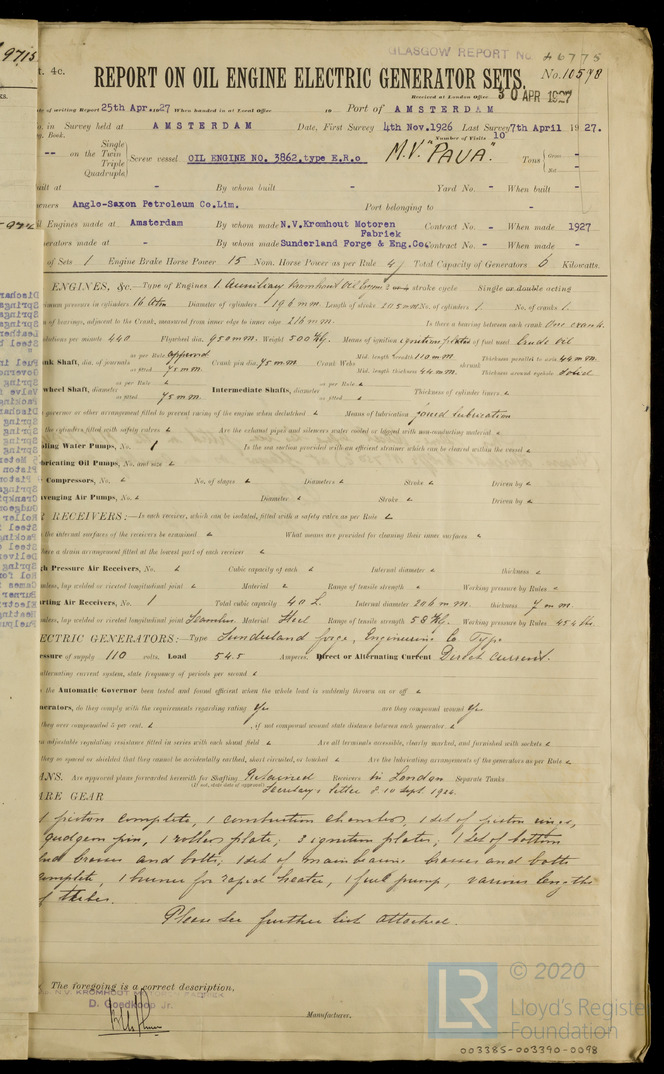 GLASGOW REPORT No. 46775
t. 4c.
REPORT ON OIL ENGINE ELECTRIC GENERATOR SETS.
No. 10598
Received at London Office 30 APR 1927
of writing Report 25th Apr. 1927 When handed in at Local Office 19 Port of AMSTERDAM
in Survey held at AMSTERDAM Date, First Survey 4th Nov.1926 Last Survey 7th April 1927.
Book. Number of Visits 10
-- on the Single Twin Triple Quadruple Screw vessel OIL ENGINE NO. 3862,type E.R.o M.V. "PAUA". Tons Gross - Net -
built at - By whom built - Yard No. - When built -
Anglo-Saxon Petroleum Co.Lim. Port belonging to -
Engines made at Amsterdam By whom made N.V.Kromhout Motoren Fabriek Contract No. - When made 1927
made at - By whom made Sunderland Forge & Eng.Co. Contract No. - When made -
of Sets 1 Engine Brake Horse Power 15 Nom. Horse Power as per Rule 4 Total Capacity of Generators 6 Kilowatts.
ENGINES, &c.—Type of Engines 1 Auxiliary Kromhout Oil Engine 2 Single or double acting
pressure in cylinders 16 atm Diameter of cylinders 196 mm. Length of stroke 205 mm No. of cylinders 1. No. of cranks 1.
of bearings, adjacent to the Crank, measured from inner edge to inner edge 216 mm. Is there a bearing between each crank One crank.
per minute 440 Flywheel dia. 950 mm. Weight 500 Kg. Means of ignition ignition plates of fuel used Crude oil
Shaft, dia. of journals as per Rule approved as fitted 75 mm. Crank pin dia. 75 mm Crank Webs Mid. length breadth 110 mm Mid. length thickness 44 mm. shrunk Thickness parallel to axis 44 mm. Thickness around eyehole solid
wheel Shaft, diameter as per Rule as fitted 75 mm. Intermediate Shafts, diameter as per Rule as fitted Thickness of cylinder liners
governor or other arrangement fitted to prevent racing of the engine when declutched Means of lubrication forced lubrication
the cylinders fitted with safety valves Are the exhaust pipes and silencers water cooled or lagged with non-conducting material
Water Pumps, No. 1 Is the sea suction provided with an efficient strainer which can be cleared within the vessel
Oil Pumps, No. and size
Compressors, No. No. of stages Diameters Stroke Driven by
Air Pumps, No. Diameter Stroke Driven by
RECEIVERS:—Is each receiver, which can be isolated, fitted with a safety valve as per Rule
the internal surfaces of the receivers be examined What means are provided for cleaning their inner surfaces
have a drain arrangement fitted at the lowest part of each receiver
Pressure Air Receivers, No. Cubic capacity of each Internal diameter thickness
lap welded or riveted longitudinal joint Material Range of tensile strength Working pressure by Rules
Air Receivers, No. 1 Total cubic capacity 40 L. Internal diameter 206 mm. thickness 7 mm.
lap welded or riveted longitudinal joint Seamless Material Steel Range of tensile strength 58 Kg. Working pressure by Rules
ELECTRIC GENERATORS:—Type Sunderland forge, Engineering Co Type
of supply 110 volts. Load 54.5 Amperes. Direct or Alternating Current Direct current.
alternating current system, state frequency of periods per second
the Automatic Governor been tested and found efficient when the whole load is suddenly thrown on or off
do they comply with the requirements regarding rating Yes are they compound wound Yes
they over compounded 5 per cent. if not compound wound state distance between each generator
adjustable regulating resistance fitted in series with each shunt field Are all terminals accessible, clearly marked, and furnished with sockets
they so spaced or shielded that they cannot be accidentally earthed, short circuited, or touched Are the lubricating arrangements of the generators as per Rule
Are approved plans forwarded herewith for Shafting Retained Receivers in London Separate Tanks
(If not, state date of approval) Secretary's letter E 10 Sept. 1926.
GEAR
1 piston complete, 1 combustion chamber, 1 set of piston rings,
gudgeon pin, 1 rollers plate, 3 ignition plates, 1 set of bottom
end brasses and bolts, 1 set of main bearing brasses and bolts
complete, 1 burner for rapid heater, 1 fuel pump, various lengths
of tubes.
Please see further list attached.
The foregoing is a correct description,
N.V. KROMHOUT MOTOREN FABRIEK
D. Goedkoop Jr.
Manufacturer.
© 2020
LR
Lloyd's Register
Foundation
003385-003390-0098